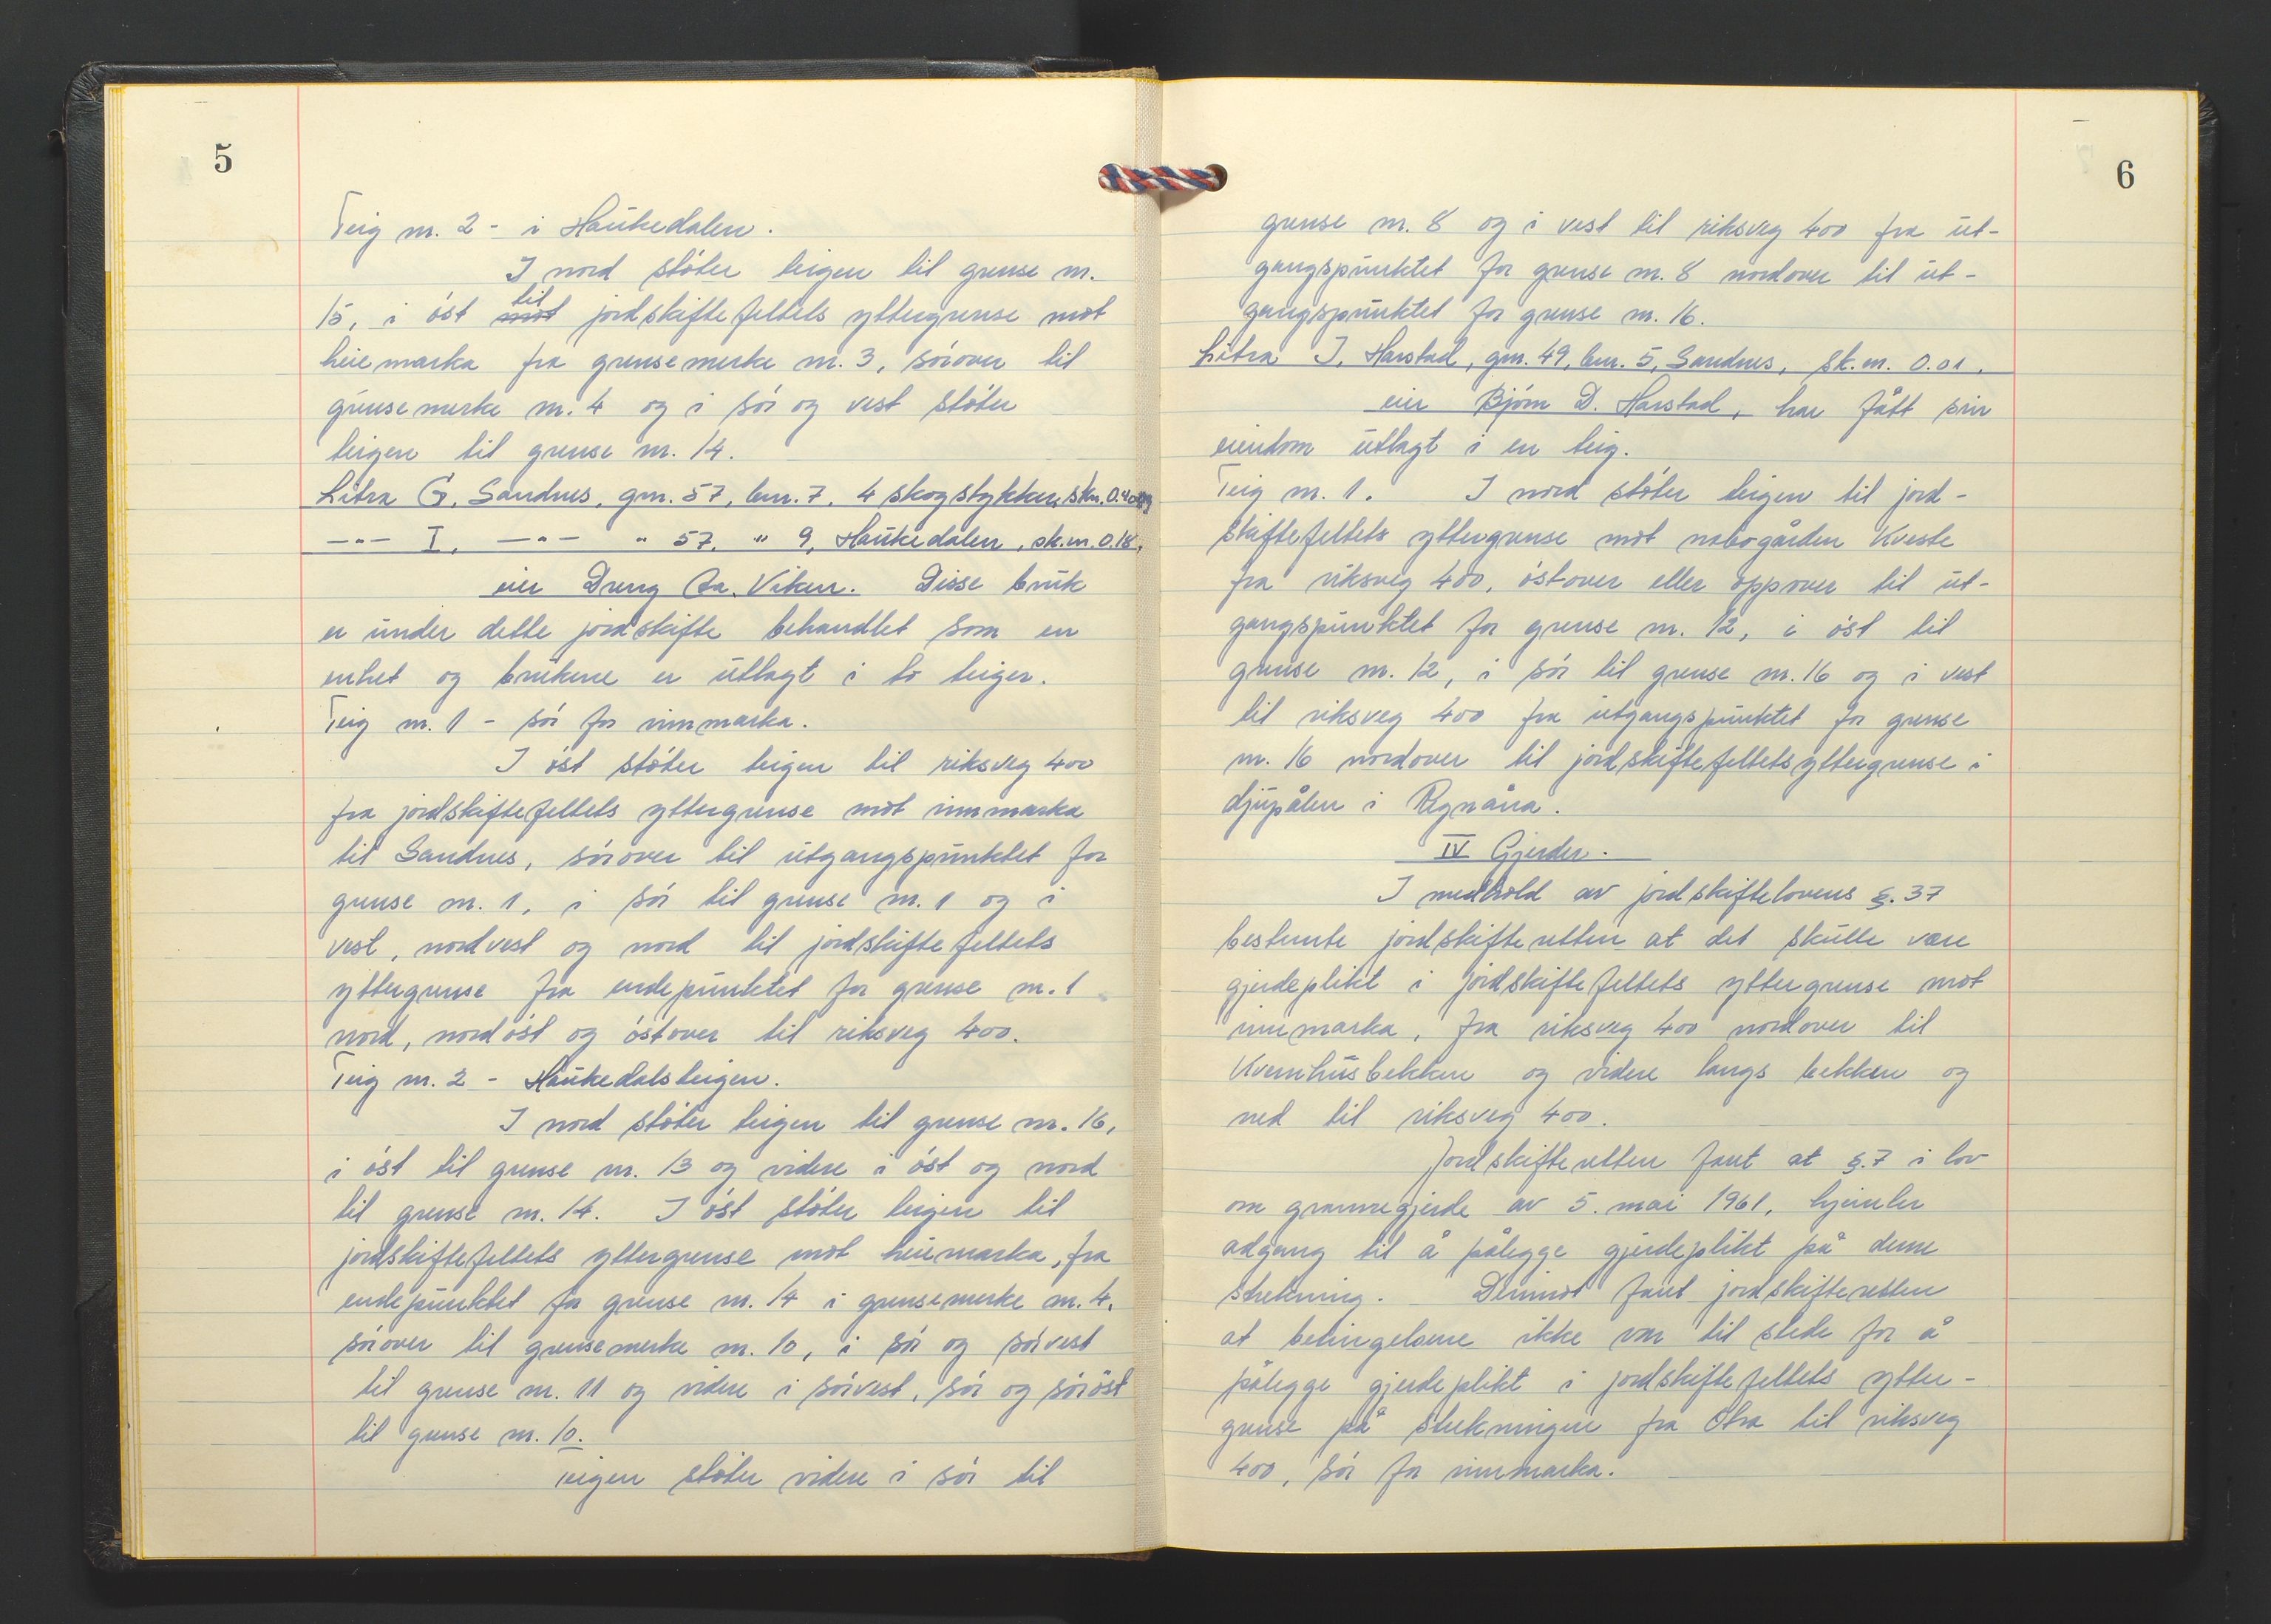 5
Teig nr. 2 - i Haukedalen.
I nord støter teigen til grense nr.
15, i øst til mot jordskiftefeltets yttergrense mot
heiemarka fra grensemerke nr. 3, sørover til
grensemerke nr. 4 og i sør og vest støter
teigen til grense nr. 14.
Litra G, Sandnes, gnr. 57, bnr. 7, 4 skogstykker, skm. 0.40 og
—"— I, —"— " 57, " 9, Haukedalen, sk.m. 0.18,
eier Dreng Aa. Viken. Disse bruk
er under dette jordskifte behandlet som en
enhet og brukene er utlagt i to teiger.
Teig nr. 1 - sør for innmarka.
I øst støter teigen til riksveg 400
fra jordskiftefeltets yttergrense mot innmarka
til Sandnes, sørover til utgangspunktet for
grense nr. 1, i sør til grense nr. 1 og i
vest, nordvest og nord til jordskiftefeltets
yttergrense fra endepunktet for grense nr. 1
nord, nordøst og østover til riksveg 400.
Teig nr. 2 - Haukedalsteigen.
I nord støter teigen til grense nr. 16,
i øst til grense nr. 13 og videre i øst og nord
til grense nr. 14. I øst støter teigen til
jordskiftefeltets yttergrense mot heiemarka, fra
endepunktet for grense nr. 14 i grensemerke nr. 4,
sørover til grensemerke nr. 10, i sør og sørvest
til grense nr. 11 og videre i sørvest, sør og sørøst
til grense nr. 10.
Teigen støter videre i sør til
6
grense nr. 8 og i vest til riksveg 400 fra ut-
gangspunktet for grense nr. 8 nordover til ut-
gangspunktet for grense nr. 16.
Litra J, Harstad, gnr. 49, bnr. 5, Sandnes, sk.m. 0.01,
eier Bjørn D. Harstad, har fått sin
eiendom utlagt i en teig.
Teig nr. 1. I nord støter teigen til jord-
skiftefeltets yttergrense mot nabogården Kveste
fra riksveg 400, østover eller oppover til ut-
gangspunktet for grense nr. 12, i øst til
grense nr. 12, i sør til grense nr. 16 og i vest
til riksveg 400 fra utgangspunktet for grense
nr. 16 nordover til jordskiftefeltets yttergrense i
djupålen i Regnåna.
IV Gjerder.
I medhold av jordskiftelovens §. 37
bestemte jordskifteretten at det skulle være
gjerdeplikt i jordskiftefeltets yttergrense mot
innmarka, fra riksveg 400 nordover til
Kvernhusbekken og videre langs bekken og
ned til riksveg 400.
Jordskifteretten fant at §. 7 i lov
om grannegjerde av 5. mai 1961, hjemler
adgang til å pålegge gjerdeplikt på denne
strekning. Derimot fant jordskifteretten
at betingelsene ikke var til stede for å
pålegge gjerdeplikt i jordskiftefeltets ytter-
grense på strekningen fra Otra til riksveg
400, sør for innmarka.